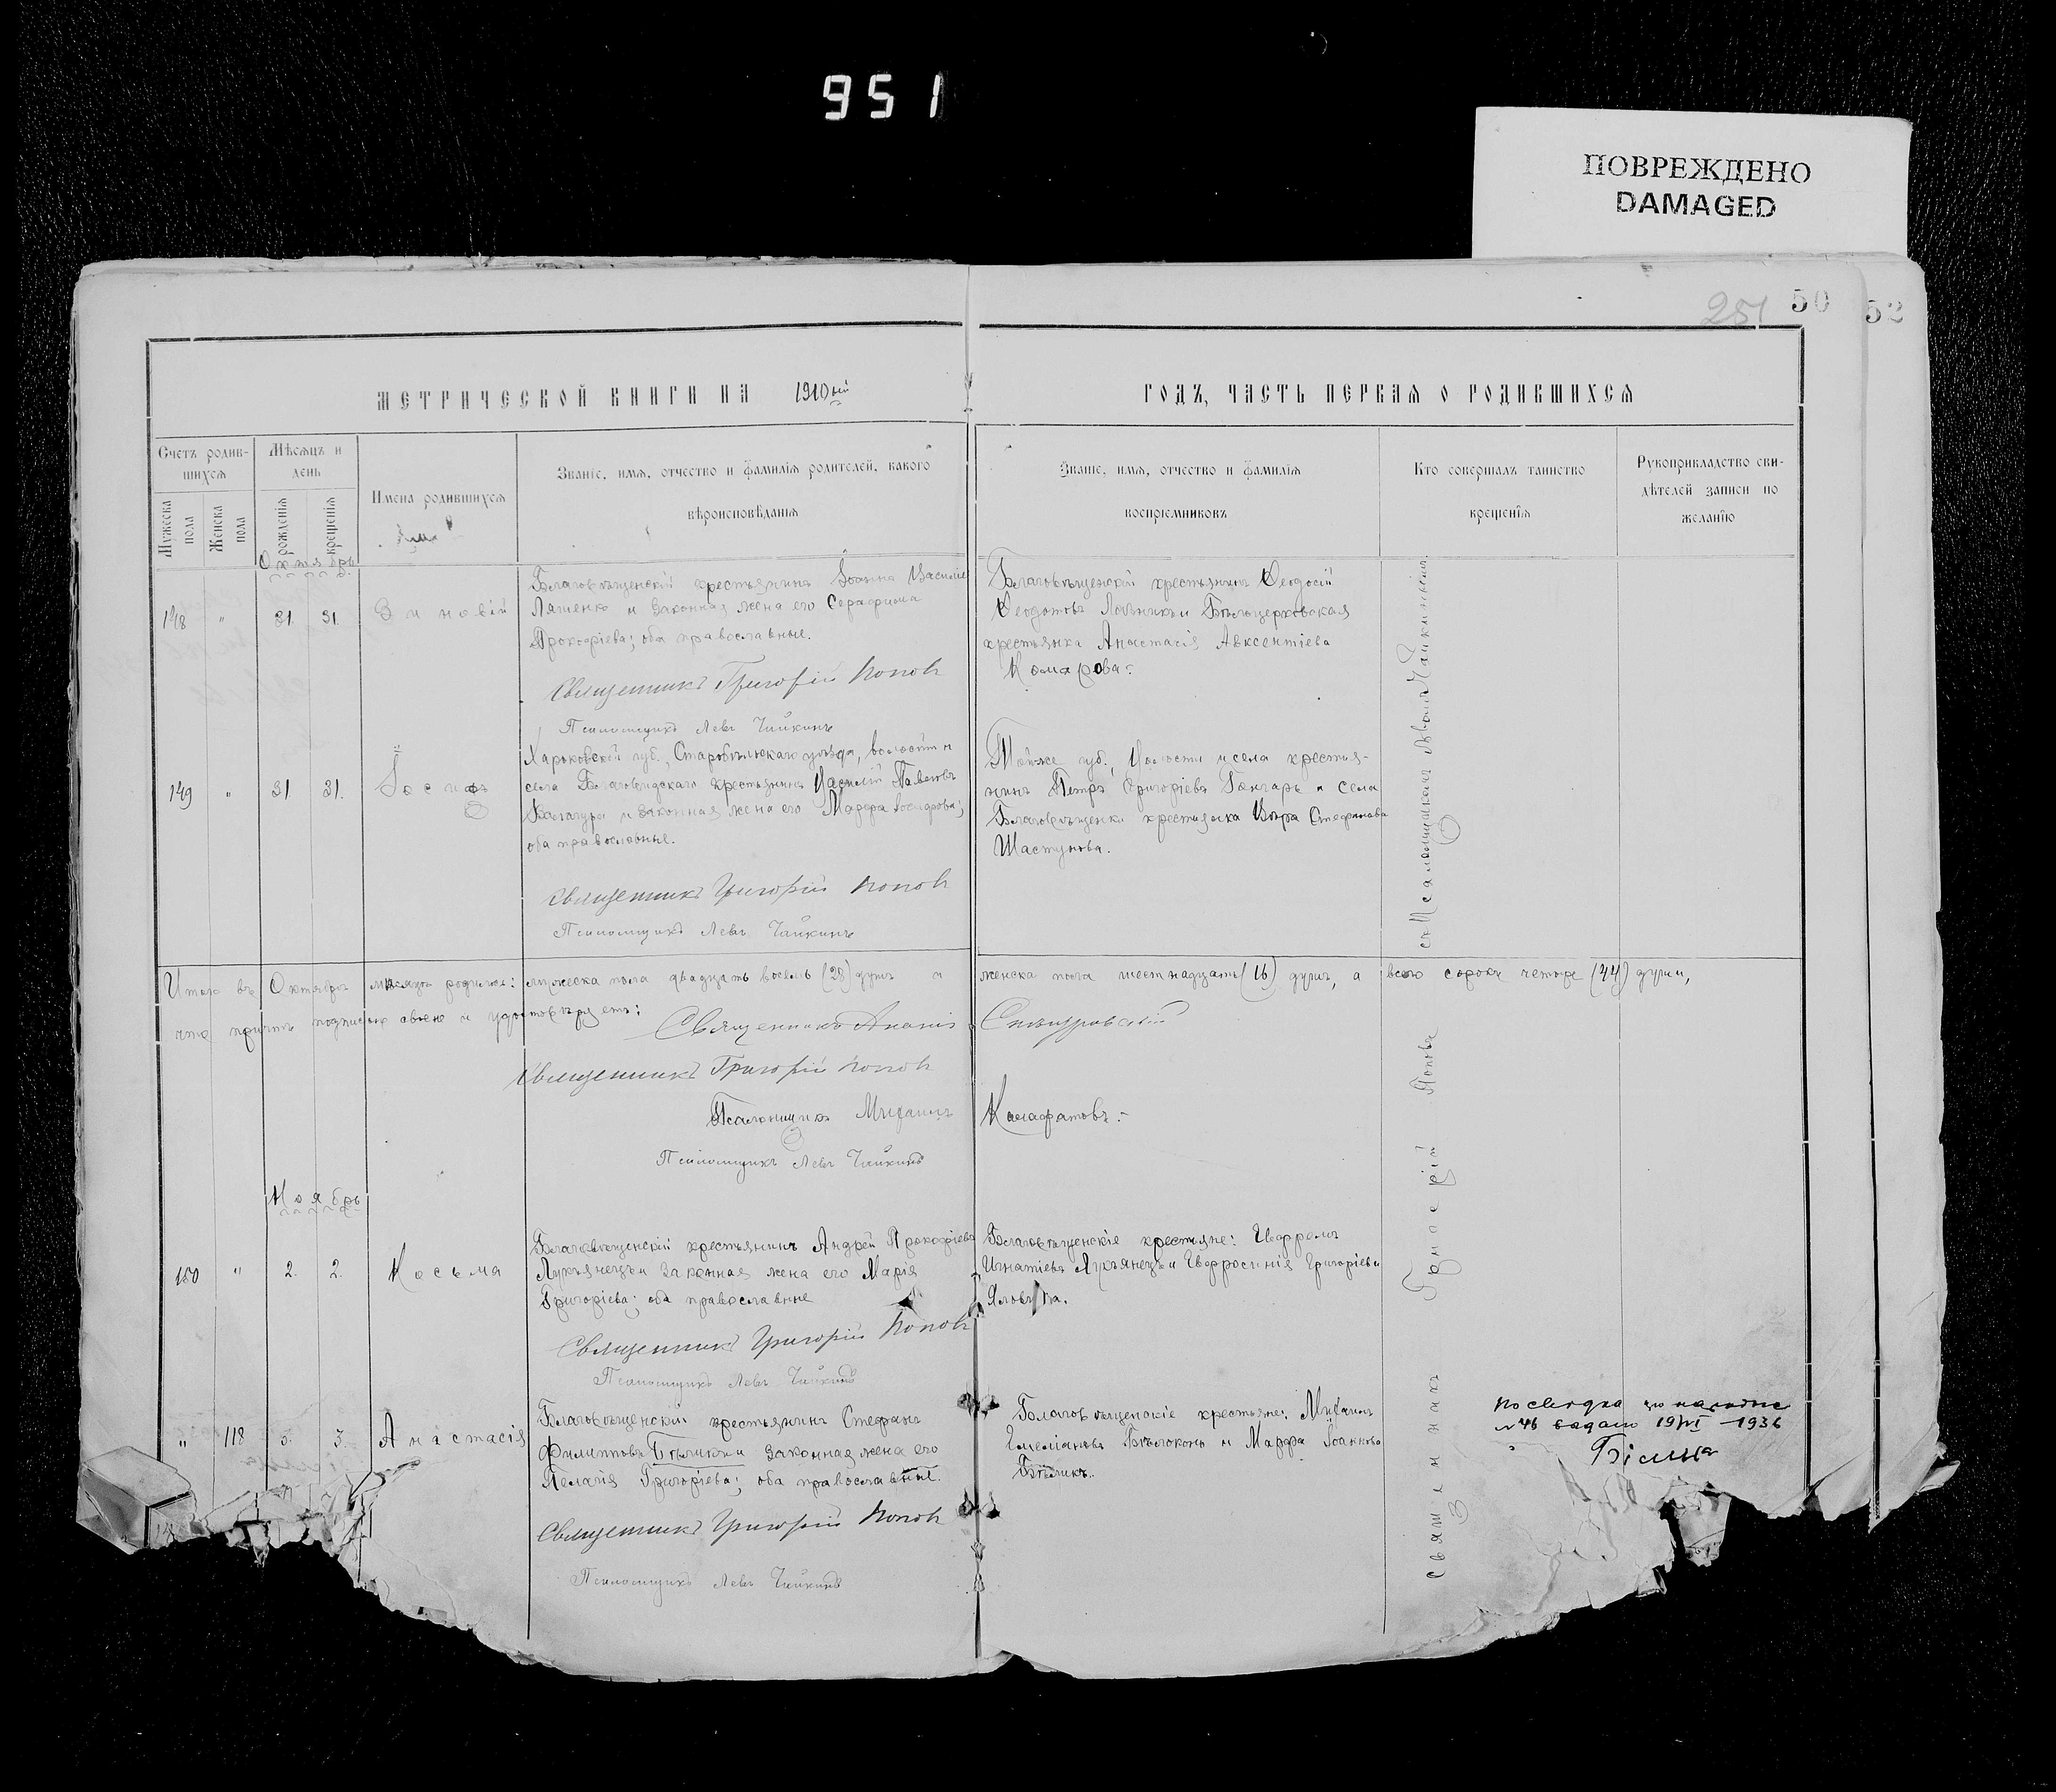 951
ПОВРЕЖДЕНО
DAMAGED
251 50 52
МЕТРИЧЕСКОЙ КНИГИ НА 1910ый ГОДЪ, ЧАСТЬ ПЕРВАЯ О РОДИВШИХСЯ
Счетъ родив-
шихся
Мужеска пола
Женска пола
Мѣсяцъ и
день
рожденія
крещенія
Имена родившихся
Званіе, имя, отчество и фамилія родителей, какого
вѣроисповѣданія
Званіе, имя, отчество и фамилія
воспріемниковъ
Кто совершалъ таинство
крещенія
Рукоприкладство сви-
дѣтелей записи по
желанію
Октябрь
148 " 31. 31. Зиновій
Благовѣщенскій крестьянинъ Іоаннъ
Ляшенко и законная жена его Серафима
Прокофіева; оба православные.
Священникъ Григорій Попов
Псаломщикъ Левъ Чайкинъ
Благовѣщенскій крестьянинъ Ѳеодосій
Ѳеодотовъ и Бѣлоцерковская
крестьянка Анастасія Авксентіева
Комарова.
149 " 31 31. Іосифъ
Харьковской губ., Старобѣльскаго уѣзда, волости и
села крестьянинъ Василій Павловъ
и законная жена его Марфа
оба православные.
Священникъ Григорій Попов
Псаломщикъ Левъ Чайкинъ
Той же губ., волости и села крестья-
нинъ Петръ Григоріевъ Гончаръ и села
Благовѣщенки крестьянка Вѣра Стефанова
Шастунова.
съ Псаломщикомъ Львомъ Чайкинымъ
Итого въ Октябрѣ мѣсяцѣ родилось: мужеска пола двадцать восемь (28) душъ и женска пола шестнадцать (16) душъ, а всего сорокъ четыре (44) души,
что причтъ подписью своею и удостовѣряетъ:
Священникъ
Священникъ Григорій Попов
Псаломщикъ Михаилъ Калафатовъ.
Псаломщикъ Левъ Чайкинъ
Ноябрь
150 " 2. 2. Косьма
Благовѣщенскій крестьянинъ Андрей Прокофіевъ
Лукьянецъ и законная жена его Марія
Григоріева; оба православные
Священникъ Григорій Попов
Псаломщикъ Левъ Чайкинъ
Благовѣщенскіе крестьяне:
Игнатіевъ Лукьянецъ и Евфросинія Григоріева
" 118 3. 3. Анастасія
Благовѣщенскій крестьянинъ Стефанъ
Филипповъ Бѣликъ и законная жена его
Пелагія Григоріева; оба православные.
Священникъ Григорій Попов
Псаломщикъ Левъ Чайкинъ
Благовѣщенскіе крестьяне: Михаилъ
Емеліановъ Бѣлоконь и Марфа Іоаннова
Бѣликъ.
Священникъ Григорій Поповъ
№ 46 19/VI 1936